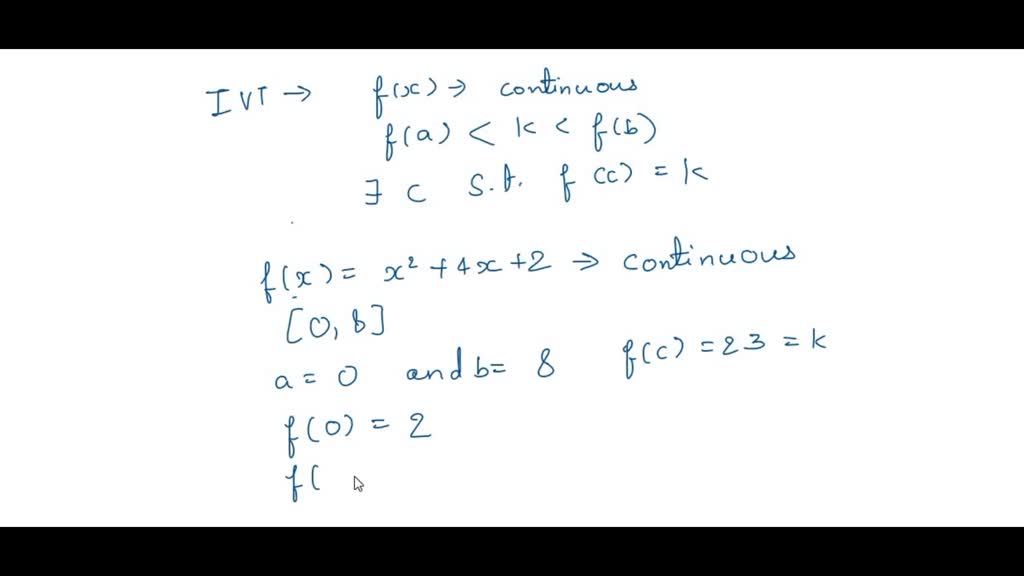 IVT → f(x) → continuous
f(a) < k < f(b)
∃ c s.t. f(c) = k
f(x) = x² + 4x + 2 → continuous
[0, 8]
a = 0 and b = 8 f(c) = 23 = k
f(0) = 2
f(